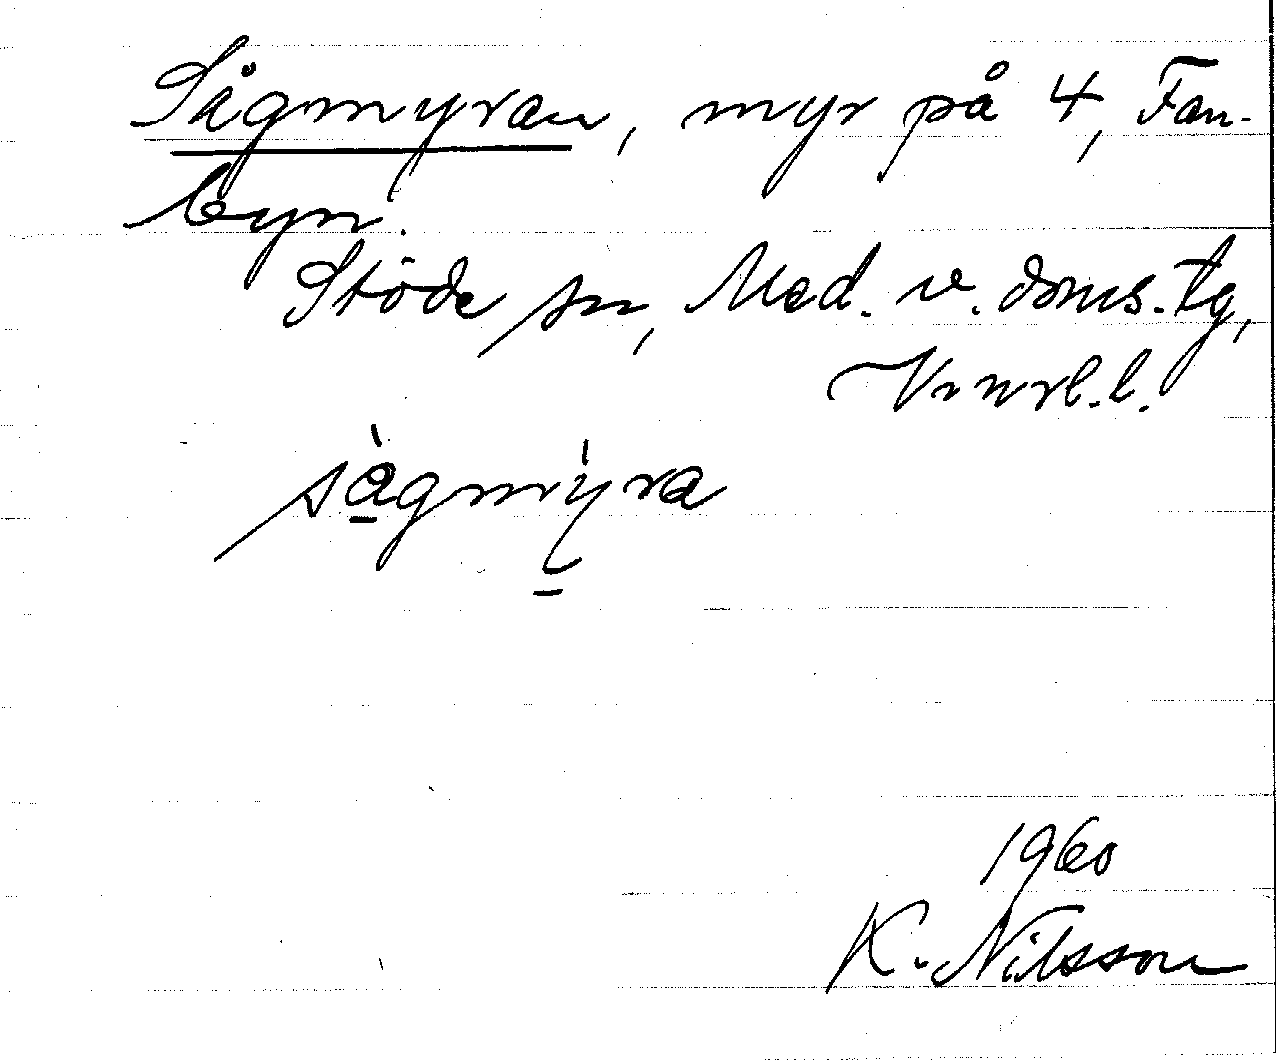 Sågmyran, myr på 4, Fan-
byn.
Stöde sn, Med. v. doms. tg,
Vrnrl. l.
sågmyra
1960
K. Nilsson